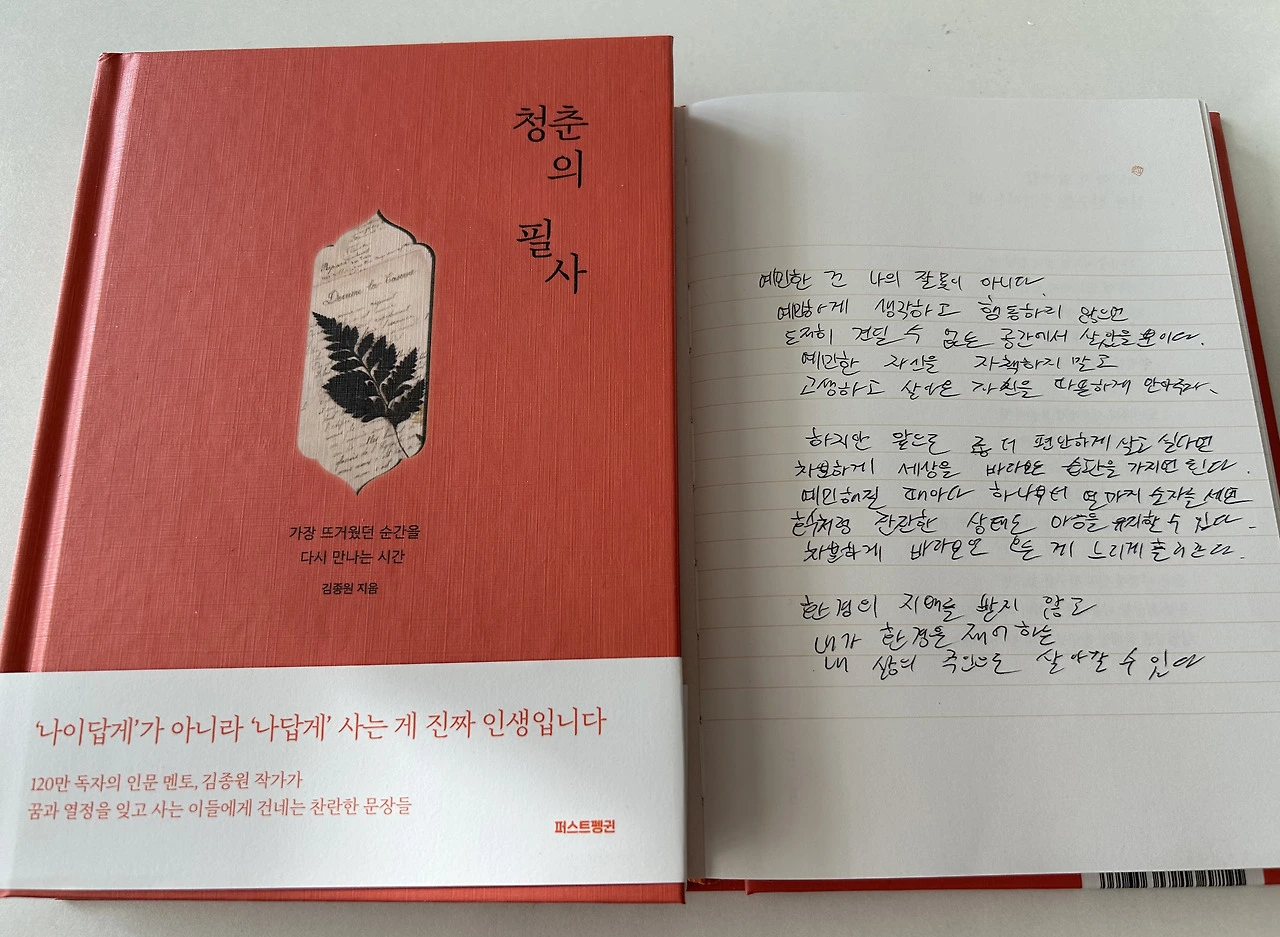 청춘
의
필
사
Derniere la Caisse
가장 뜨거웠던 순간을
다시 만나는 시간
김종원 지음
‘나이답게’가 아니라 ‘나답게’ 사는 게 진짜 인생입니다
120만 독자의 인문 멘토, 김종원 작가가
꿈과 열정을 잊고 사는 이들에게 건네는 찬란한 문장들
퍼스트펭귄
예민한 건 나의 잘못이 아니다.
예민하게 생각하고 행동하지 않으면
도저히 견딜 수 없는 공간에서 살았을 뿐이다.
예민한 자신을 자책하지 말고
고생하고 살아온 자신을 따뜻하게 안아주라.
하지만 앞으로 좀 더 편안하게 살고 싶다면
차분하게 세상을 바라보는 습관을 가지면 된다.
예민해질 때마다 하나부터 열까지 숫자를 세면
호수처럼 잔잔한 상태로 마음을 유지할 수 있다.
차분하게 바라보면 모든 게 느리게 흘러간다.
환경의 지배를 받지 않고
내가 환경을 제어하는
내 삶의 주인으로 살아갈 수 있다